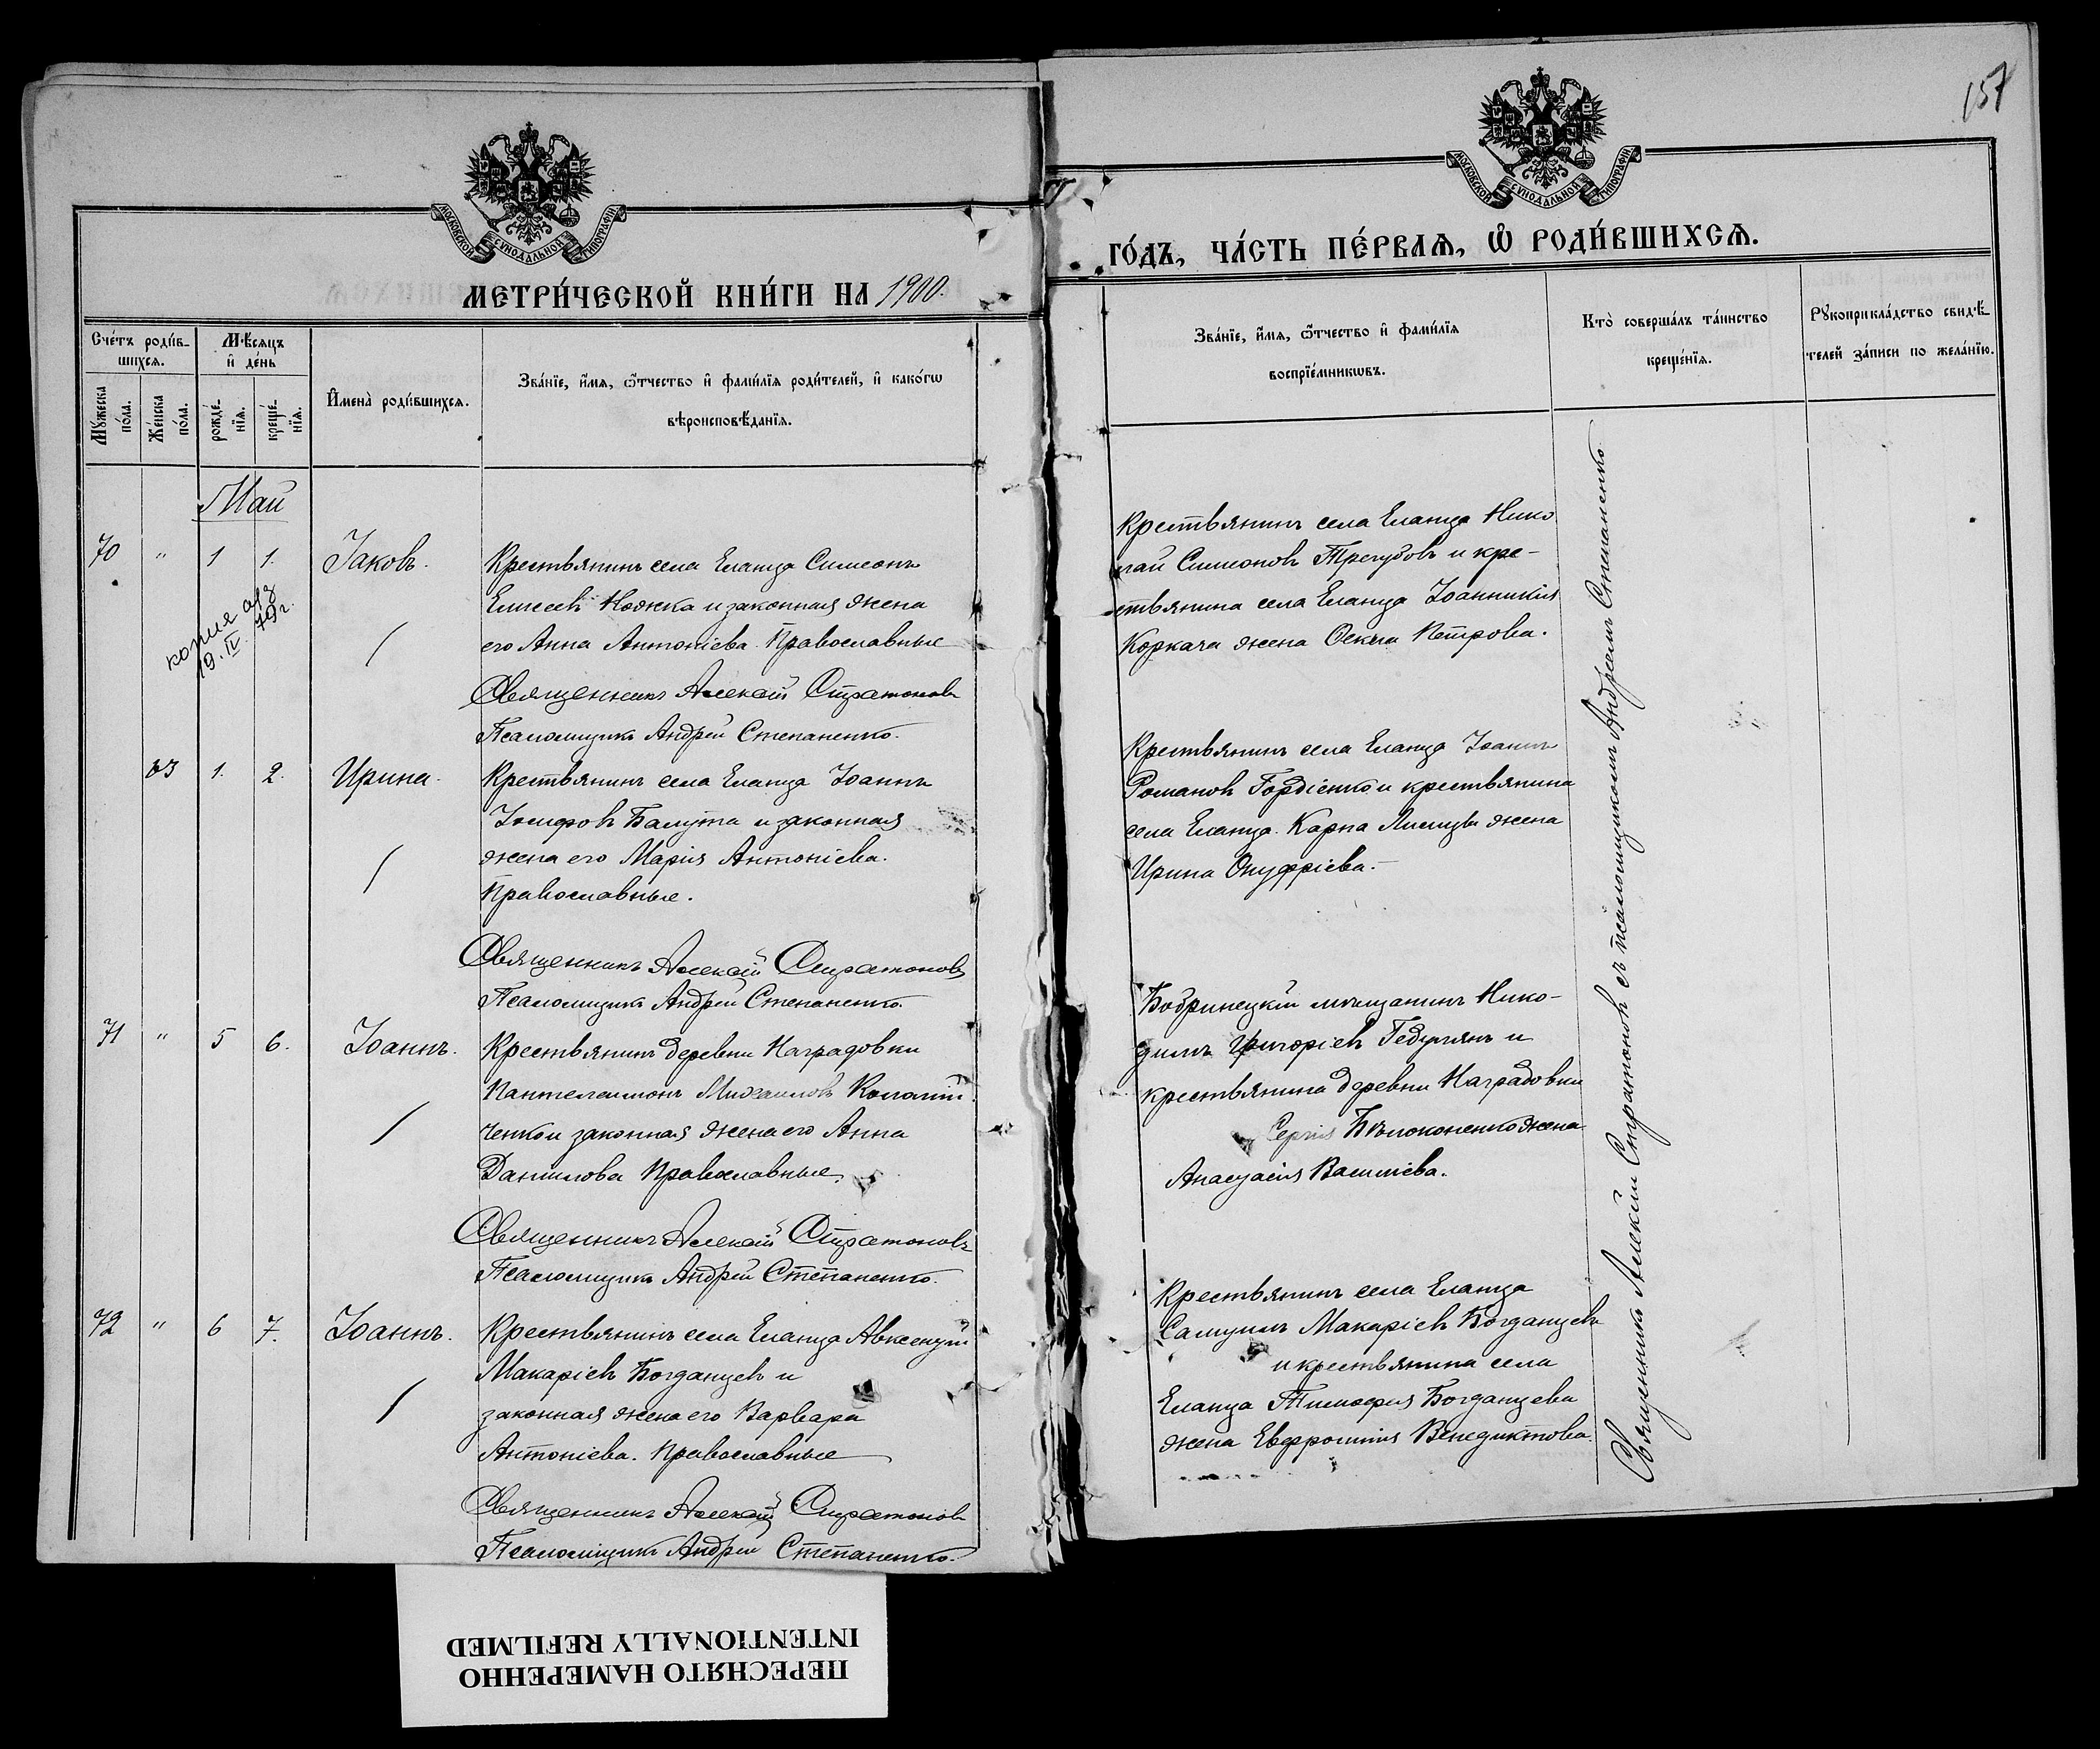 157
МОСКОВСКОЙ СѴНОДАЛЬНОЙ ТИПОГРАФІИ
МОСКОВСКОЙ СѴНОДАЛЬНОЙ ТИПОГРАФІИ
МЕТРИ́ЧЕСКОЙ КНИ́ГИ НА 1900.
ГО́ДЪ, ЧА́СТЬ ПЕ́РВАѦ, Ѡ҆ РОДИ́ВШИХСѦ.
Сче́тъ роди́в-
шихсѧ.
Мꙋ́жеска по́ла.
Же́нска по́ла.
Мѣ́сѧцъ и҆ де́нь
рожде́-нїѧ.
креще́-нїѧ.
И҆мена̀ роди́вшихсѧ.
Зва́нїе, и҆́мѧ, ѻ҆́тчество и҆ фами́лїѧ роди́телей, и҆ како́гѡ
вѣроисповѣ́данїѧ.
Зва́нїе, и҆́мѧ, ѻ҆́тчество и҆ фами́лїѧ
воспрїе́мникѡвъ.
Кто̀ соверша́лъ та́инство
креще́нїѧ.
Рꙋкоприкла́дство свидѣ́-
телей за́писи по жела́нїю.
Май
70 " 1 1. Іаковъ.
Крестьянинъ села Еланца Симеонъ
Елисеевъ Ножка и законная жена
его Анна Антоніева Православные
копия
19.IV.
Священникъ Алексій Стратоновъ
Псаломщикъ Андрей Степаненко.
Крестьянинъ села Еланца Нико
лай Симеоновъ Трегубовъ и кре-
стьянина села Еланца Іоанникія
Коркача жена Ѳекла Петрова.
63 1. 2. Ирина.
Крестьянинъ села Еланца Іоаннъ
Іосифовъ Балута и законная
жена его Марія Антоніева.
Православные.
Священникъ Алексій Стратоновъ
Псаломщикъ Андрей Степаненко.
Крестьянинъ села Еланца Іоаннъ
Романовъ Гордіенко и крестьянина
села Еланца Карпа жена
Ирина Онуфріева.
71 " 5 6. Іоаннъ.
Крестьянинъ деревни Наградовки
Пантелеимонъ Михаиловъ
ченко и законная жена его Анна
Данилова Православные.
Священникъ Алексій Стратоновъ
Псаломщикъ Андрей Степаненко.
Бобринецкій мѣщанинъ Нико-
димъ Григоріевъ и
крестьянина деревни Наградовки
Сергія Бѣлоконенко жена
Анастасія Василіева.
72 " 6 7. Іоаннъ.
Крестьянинъ села Еланца Авксентій
Макаріевъ Богданцевъ и
законная жена его Варвара
Антоніева. Православные
Священникъ Алексій Стратоновъ
Псаломщикъ Андрей Степаненко.
Крестьянинъ села Еланца
Самуилъ Макаріевъ Богданцевъ
и крестьянина села
Еланца Тимофея Богданцева
жена Евфросинія Венедиктова.
Священникъ Алексій Стратоновъ съ псаломщикомъ Андреемъ Степаненко
ПЕРЕСНЯТО НАМЕРЕННО
INTENTIONALLY REFILMED